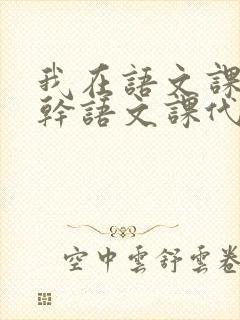 我在語文課
幹語文課代
空中雲舒雲卷